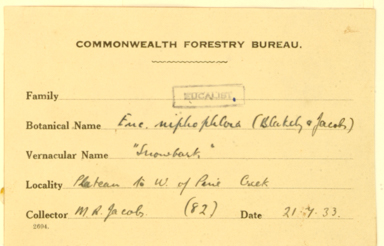 COMMONWEALTH FORESTRY BUREAU.
Family EUCALYPT.
Botanical Name Euc. niphophlora (Blakely & Jacobs)
Vernacular Name "Snowbark."
Locality Plateau to W. of Pine Creek
Collector M. R. Jacobs (82) Date 21.7.33.
2694.